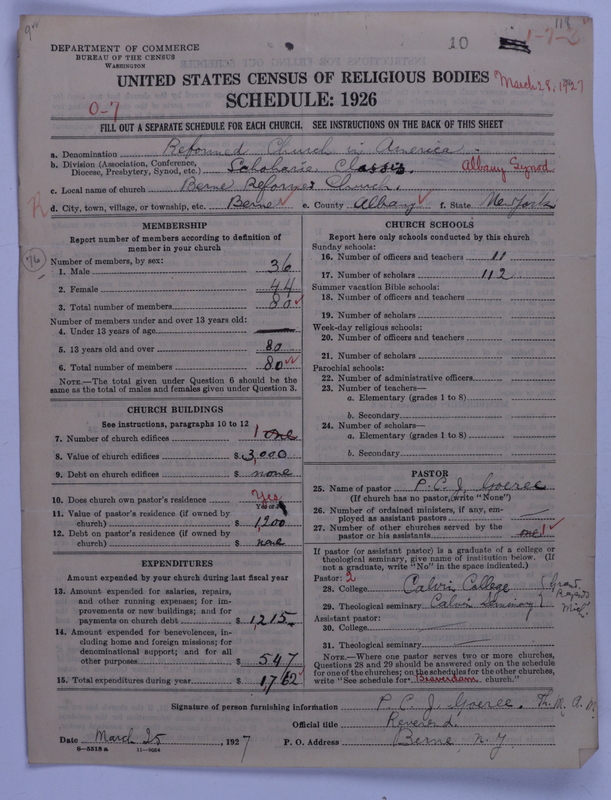 DEPARTMENT OF COMMERCE
BUREAU OF THE CENSUS
WASHINGTON
10
March 28, 1927
UNITED STATES CENSUS OF RELIGIOUS BODIES
SCHEDULE: 1926
0-7
FILL OUT A SEPARATE SCHEDULE FOR EACH CHURCH. SEE INSTRUCTIONS ON THE BACK OF THIS SHEET
a. Denomination Reformed Church in America
b. Division (Association, Conference, Diocese, Presbytery, Synod, etc.) Schoharie Classis. Albany Synod
c. Local name of church Berne Reformed Church.
d. City, town, village, or township, etc. Berne e. County Albany f. State New York
76
MEMBERSHIP
Report number of members according to definition of
member in your church
Number of members, by sex:
1. Male 36
2. Female 44
3. Total number of members 80
Number of members under and over 13 years old:
4. Under 13 years of age
5. 13 years old and over 80
6. Total number of members 80
NOTE.—The total given under Question 6 should be the
same as the total of males and females given under Question 3.
CHURCH BUILDINGS
See instructions, paragraphs 10 to 12
7. Number of church edifices 1 one
8. Value of church edifices $ 3,000
9. Debt on church edifices $ none
10. Does church own pastor's residence Yes
Yes or No
11. Value of pastor's residence (if owned by
church) $ 1200
12. Debt on pastor's residence (if owned by
church) $ none
EXPENDITURES
Amount expended by your church during last fiscal year
13. Amount expended for salaries, repairs,
and other running expenses; for im-
provements or new buildings; and for
payments on church debt $ 1215
14. Amount expended for benevolences, in-
cluding home and foreign missions; for
denominational support; and for all
other purposes $ 547
15. Total expenditures during year $ 1762
CHURCH SCHOOLS
Report here only schools conducted by this church
Sunday schools:
16. Number of officers and teachers 11
17. Number of scholars 112
Summer vacation Bible schools:
18. Number of officers and teachers
19. Number of scholars
Week-day religious schools:
20. Number of officers and teachers
21. Number of scholars
Parochial schools:
22. Number of administrative officers
23. Number of teachers—
a. Elementary (grades 1 to 8)
b. Secondary
24. Number of scholars—
a. Elementary (grades 1 to 8)
b. Secondary
PASTOR
25. Name of pastor P. C. J. Goeree
(If church has no pastor, write "None")
26. Number of ordained ministers, if any, em-
ployed as assistant pastors
27. Number of other churches served by the
pastor or his assistants one 1
If pastor (or assistant pastor) is a graduate of a college or
theological seminary, give name of institution below. (If
not a graduate, write "No" in the space indicated.)
Pastor: 2
28. College Calvin College Grand Rapids Mich.
29. Theological seminary Calvin Seminary
Assistant pastor:
30. College
31. Theological seminary
NOTE.—Where one pastor serves two or more churches,
Questions 28 and 29 should be answered only on the schedule
for one of the churches; on the schedules for the other churches,
write "See schedule for Beaverdam church."
Signature of person furnishing information P. C. J. Goeree. Th. M. A. M.
Official title Reverend.
Date March 25, 1927 P. O. Address Berne, N. Y
8—5518a 11—9064